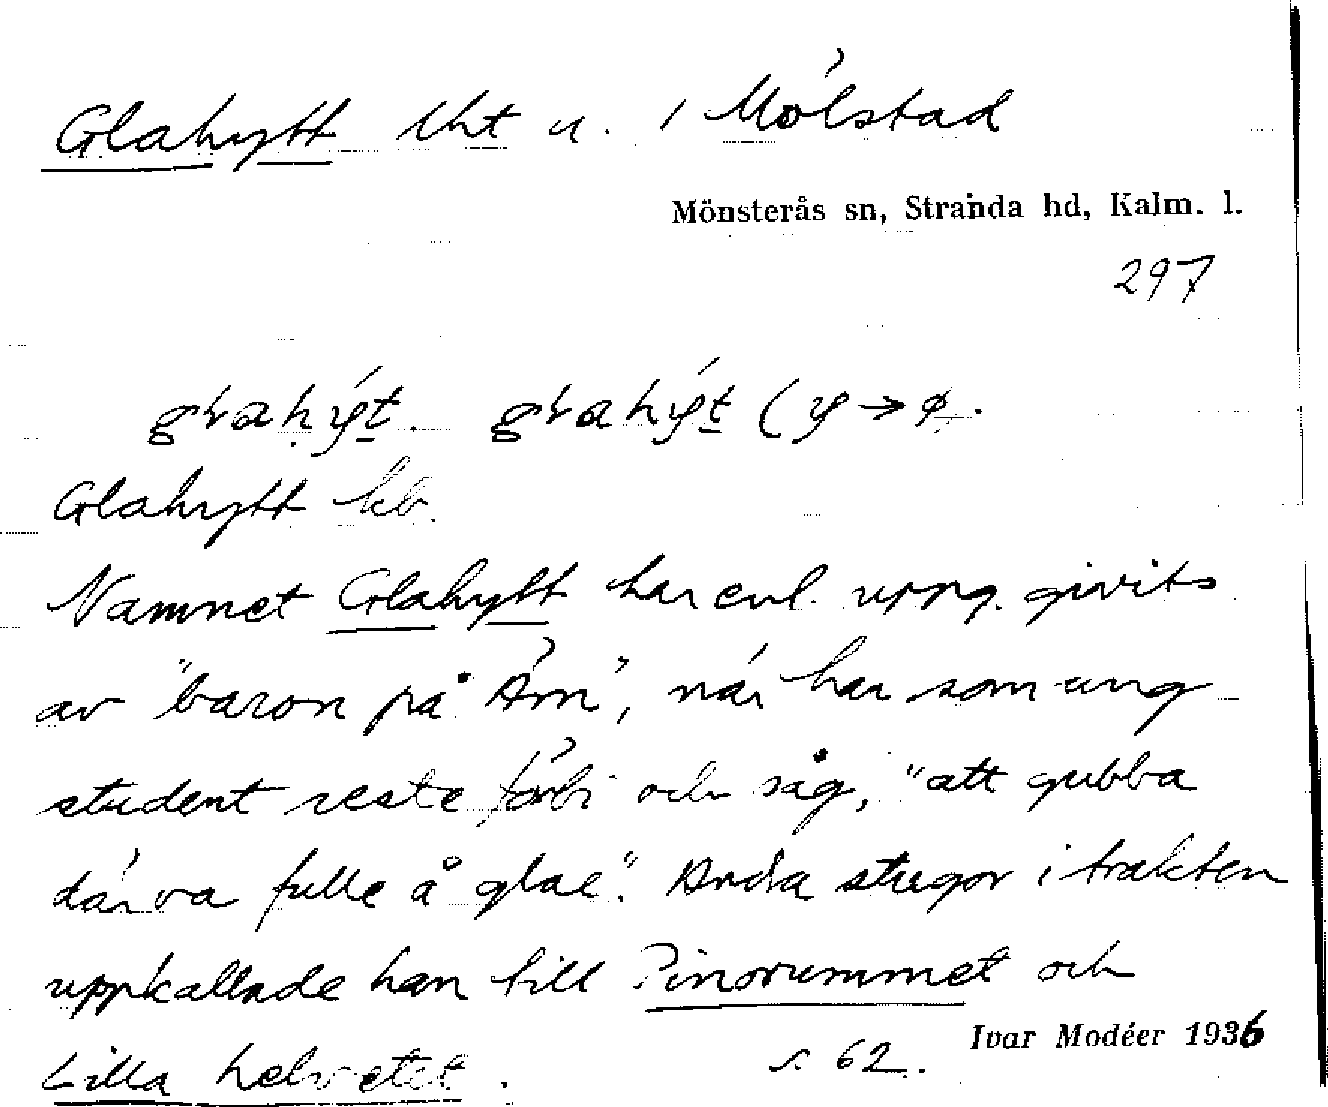 Glahytt lht u. / Mölstad
Mönsterås sn, Stranda hd, Kalm. l.
297
Glahytt kb.
Namnet Glahytt har enl. uppg. givits
av "baron på Ém", när han som ung
student reste förbi och såg, "att gubba
där va fulle å glae". Andra stugor i trakten
uppkallade han till Pinorummet och
Lilla helvetet.
s. 62.
Ivar Modéer 1936